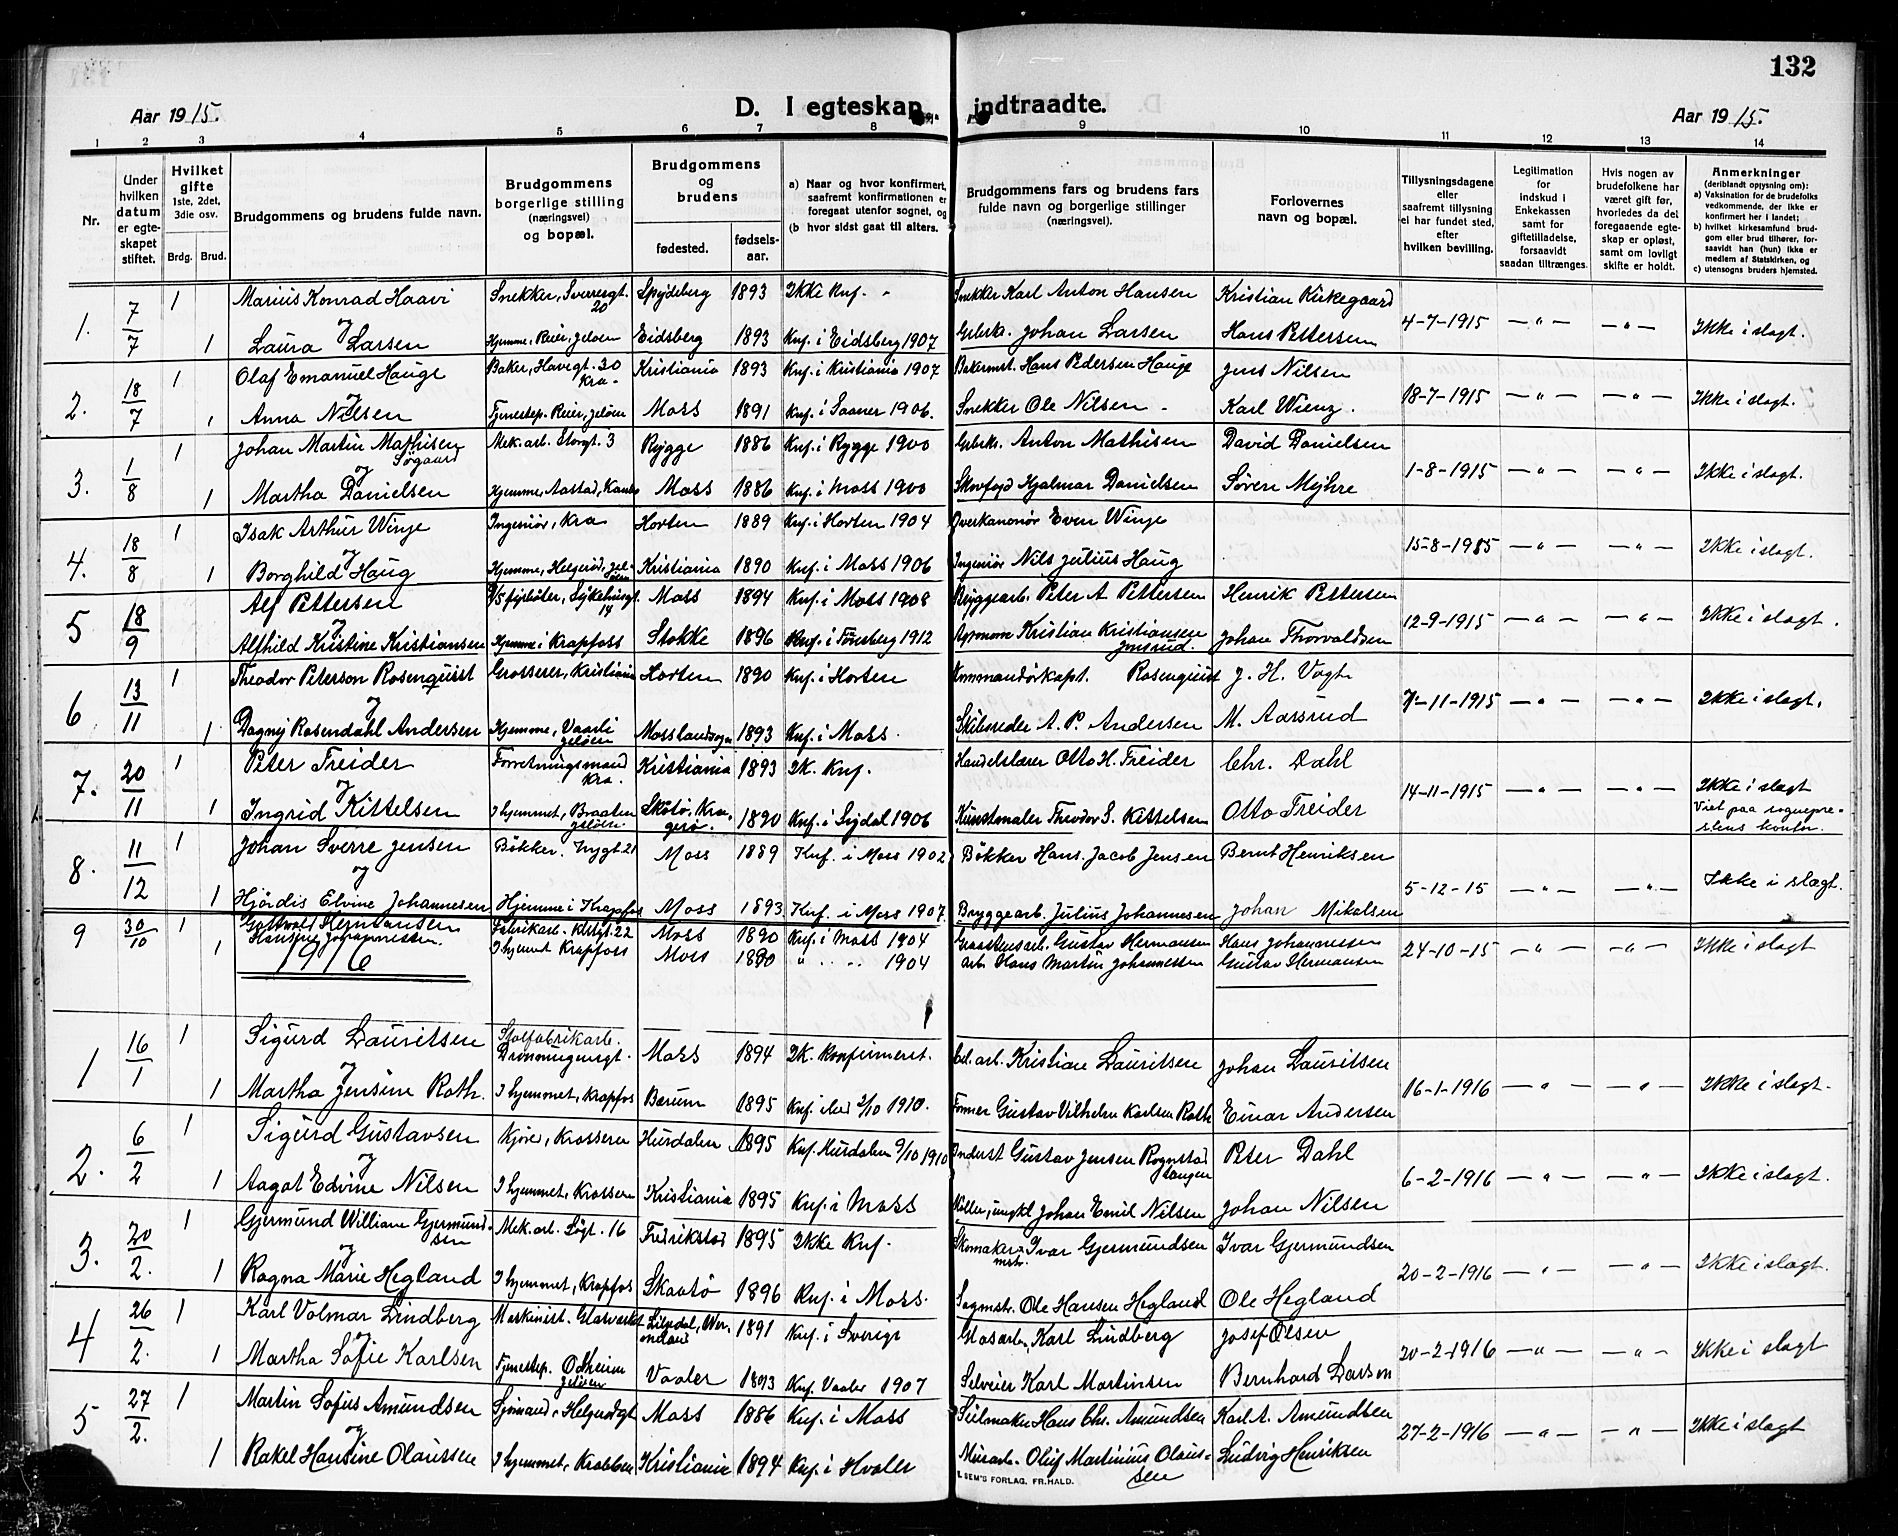 132
Aar 1915.
D. I egteskap indtraadte.
Aar 1915.
1 2 3 4 5 6 7 8 9 10 11 12 13 14
Nr.
Under hvilken datum er egteskapet stiftet.
Hvilket gifte 1ste, 2det, 3die osv.
Brdg. Brud.
Brudgommens og brudens fulde navn.
Brudgommens borgerlige stilling (næringsvei) og bopæl.
Brudgommens og brudens
fødested.
fødselsaar.
a) Naar og hvor konfirmert, saafremt konfirmationen er foregaat utenfor sognet, og (b hvor sidst gaat til alters.
Brudgommens fars og brudens fars fulde navn og borgerlige stillinger (næringsvei).
Forlovernes navn og bopæl.
Tillysningsdagene eller saafremt tillysning ei har fundet sted, efter hvilken bevilling.
Legitimation for Indskud i Enkekassen samt for giftetilladelse, forsaavidt saadan tiltrænges.
Hvis nogen av brudefolkene har været gift før, hvorledes da det foregaaende egteskap er opløst, samt om lovligt skifte er holdt.
Anmerkninger (deriblandt opjysning om): a) Vaksination for de brudefolks vedkommende, der ikke er konfirmert her i landet; b) hvilket kirkesamfund brudgom eller brud tilhører, forsaavidt han (hun) ikke er medlem af Statskirken, og c) utensogns bruders hjemsted.
1. 7/7 1 Marius Konrad Haavi Snekker, Sverresgt. 20 Spydeberg 1893 Ikke Knf. - Snekker Karl Anton Hansen Kristian Kirkegaard
og 4-7-1915 — " — — " — Ikke i slagt.
1 Laura Larsen Hjemme, Reier, Jeløen Eidsberg 1893 Knf. i Eidsberg 1907 Gbrk. Johan Larsen Hans Pettersen
2. 18/7 1 Olaf Emanuel Hauge Baker, Havegt. 30 Kra. Kristiania 1893 Knf. i Kristiania 1907 Bakermst. Hans Pedersen Hauge Jens Nilsen
og 18-7-1915 — " — — " — Ikke i slagt.
1 Anna Nilsen Tjenestep. Reier, Jeløen Moss 1891 Knf. i Saaner 1906. Snekker Ole Nilsen - Karl Wienz.
3. 1/8 1 Johan Martin Mathisen Søgaard Mek. arb. Storgt. 3 Rygge 1886 Knf. i Rygge 1900 Gbrk. Anton Mathisen David Danielsen
og 1-8-1915 — " — — " — Ikke i slagt.
1 Martha Danielsen Hjemme, Aastad, Kambo Moss 1886 Knf. i Moss 1900 Skovfogd Hjalmar Danielsen Søren Myhre
4. 18/8 1 Isak Arthur Winge Ingeniør, Kra Horten 1889 Knf. i Horten 1904 Overkanonør Even Winge
og 15-8-1915 — " — — " — Ikke i slagt.
1 Borghild Haug Hjemme, Helgerød, Jeløen Kristiania 1890 Knf. i Moss 1906 Ingeniør Nils Julius Haug
5 18/9 Alf Pettersen Moss 1894 Knf. i Moss 1908 Bryggearb. Peter A Pettersen Henrik Pettersen
og 12-9-1915 — " — — " — Ikke i slagt.
Alfhild Kristine Kristiansen Hjemme i Krapfoss Stokke 1896 Knf. i Tønsberg 1912 Agronom Kristian Kristiansen Johan Thorvaldsen
6 13/11 1 Theodor Peterson Rosenquist Grosserer, Kristiania Horten 1890 Knf. i Horten Kommandørkapt. Rosenquist J. H. Vogt
og 7-11-1915 — " — — " — Ikke i slagt.
1 Dagny Rosendahl Andersen Hjemme, Vaarli Jeløen Mosslandsogn 1893 Knf. i Moss. Skibsreder A. P. Andersen M. Aarsrud
7. 20/11 1 Peter Treider Forretningsmand Kra. Kristiania 1893 Ik. Knf. Handelslærer Otto H. Treider Chr. Dahl
og 14-11-1915 — " — — " — Ikke i slagt
1 Ingrid Kittelsen I hjemmet, Braaten Jeløen. Skåtø, Kragerø. 1890 Knf. i Sigdal 1906 Kunstmaler Theodor S. Kittelsen Otto Treider Viet paa sogneprestens kontor.
8. 11/12 1 Johan Sverre Jensen Bøkker. Nygt. 21 Moss 1889 Knf. i Moss 1902 Bøkker Hans Jacob Jensen Bernt Henriksen
og 5-12-15 — " — — " — Ikke i slægt.
1 Hjørdis Elvine Johannesen Hjemme i Krapfos Moss 1893 Knf. i Moss 1907 Bryggearb. Julius Johannesen Johan Mikalsen
9 30/10 1 Gottwald Hermansen Fabrikarb. 22 Moss 1890 Knf. i Moss 1904 Gustav Hermansen Hans Johannessen
1 Johannessen I hjemmet Krapfoss Moss 1880 " 1904 arb. Hans Martin Johannessen Gustav Hermansen 24-10-15 — " — — " — Ikke i slagt
1916
1 16/1 1 Sigurd Lauritsen Stolfabrikarb. Dronningensgt. Moss 1894 Ik. konfirmeret. Kristian Lauritsen Johan Lauritsen
og 16-1-1916 — " — — " — Ikke i slagt.
1 Martha Jensine Roth. I hjemmet, Krapfos Bærum 1895 Knf. 2/10 1910. Former Gustav Vilhelm Karlsen Roth Einar Andersen
2. 6/2 1 Sigurd Gustavsen Kjøre, Krosseren Hurdalen 1895 Knf. Hurdalen 9/10 1910 Gustav Jensen Rognstad Peter Dahl
og 6-2-1916 — " — — " — Ikke i slagt.
1 Aagot Edvine Nilsen I hjemmet, Krosseren Kristiania 1895 Knf. i Moss Møller, ungkl Johan Emil Nilsen Johan Nilsen
3. 20/2. 1 Gjermund William Gjermundsen Mek. arb. Søgt. 16 Fredrikstad 1895 Ikke Knf. Skomakermstr. Ivar Gjermundsen Ivar Gjermundsen
og 20-2-1916 — " — — " — Ikke i slagt.
1 Ragna Marie Hegland I hjemmet, Krapfos Skaatø 1896 Knf. i Moss. Sagmstr. Ole Hansen Hegland Ole Hegland
4 26/2. 1 Karl Volmar Lindberg Maskinist. Glasverket 1891 Knf. i Sverige Glasarb. Karl Lindberg Josef Olsen
og 20-2-1916 — " — — " — Ikke i slagt
1 Martha Sofie Karlsen Tjenestep. Jeløen Vaaler 1893 Knf. Vaaler 1907 Selveier Karl Martinsen Bernhard Larsson
5 27/2. 1 Martin Sofus Amundsen Sjømand, Helgerødgt Moss 1886 Knf. i Moss Seilmaker Hans Chr. Amundsen Karl A. Amundsen
og 27-2-1916 — " — — " — Ikke i slagt
1 Rakel Hansine Olaussen I hjemmet, Krabben Kristiania 1894 Knf. i Hvaler Murarb. Oluf Martinius Olaussen Ludvig Henriksen
SEM'S FORLAG, FR.HALD.